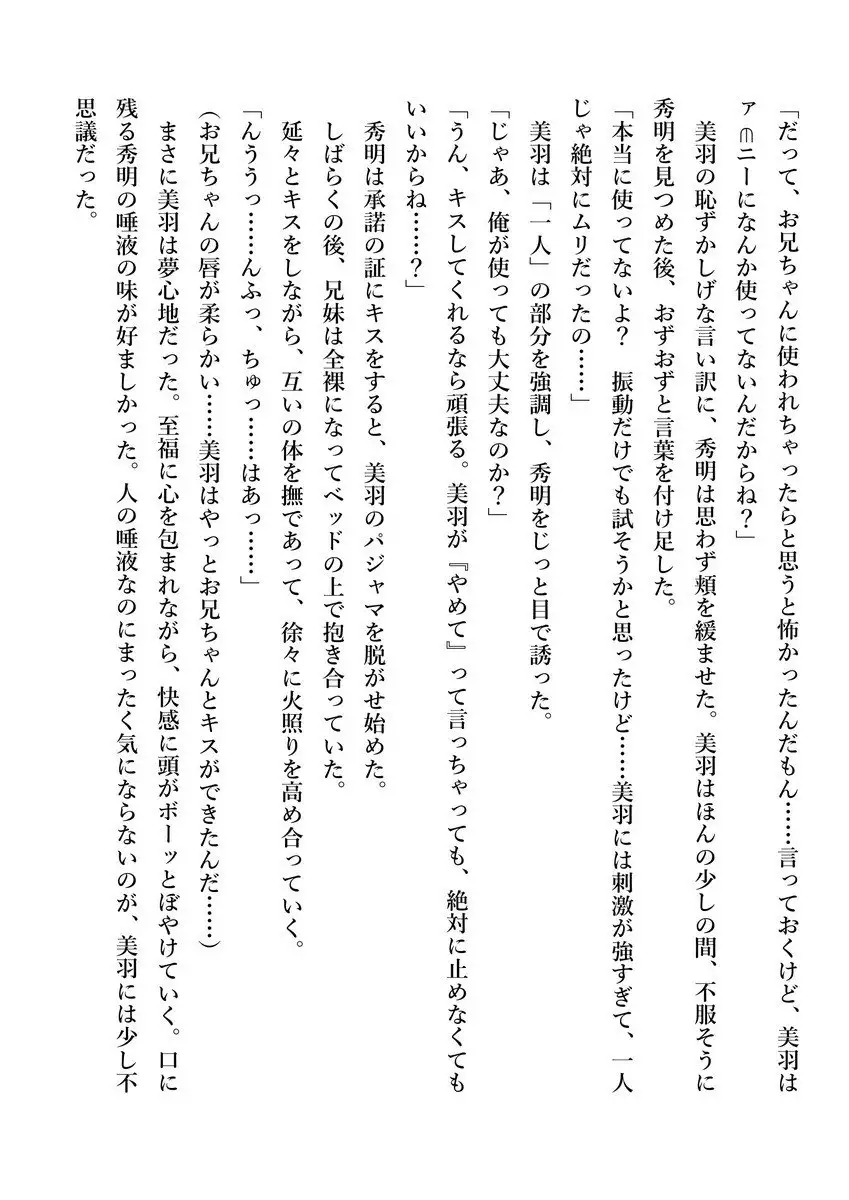 「だって、お兄ちゃんに使われちゃったらと思うと怖かったんだもん……言っておくけど、美羽は
ァ⋒ニーになんか使ってないんだからね？」
美羽の恥ずかしげな言い訳に、秀明は思わず頬を緩ませた。美羽はほんの少しの間、不服そうに
秀明を見つめた後、おずおずと言葉を付け足した。
「本当に使ってないよ？　振動だけでも試そうかと思ったけど……美羽には刺激が強すぎて、一人
じゃ絶対にムリだったの……」
美羽は「一人」の部分を強調し、秀明をじっと目で誘った。
「じゃあ、俺が使っても大丈夫なのか？」
「うん、キスしてくれるなら頑張る。美羽が『やめて』って言っちゃっても、絶対に止めなくても
いいからね……？」
秀明は承諾の証にキスをすると、美羽のパジャマを脱がせ始めた。
しばらくの後、兄妹は全裸になってベッドの上で抱き合っていた。
延々とキスをしながら、互いの体を撫であって、徐々に火照りを高め合っていく。
「んううっ……んふっ、ちゅっ……はあっ……」
(お兄ちゃんの唇が柔らかい……美羽はやっとお兄ちゃんとキスができたんだ……)
まさに美羽は夢心地だった。至福に心を包まれながら、快感に頭がボーッとぼやけていく。口に
残る秀明の唾液の味が好ましかった。人の唾液なのにまったく気にならないのが、美羽には少し不
思議だった。